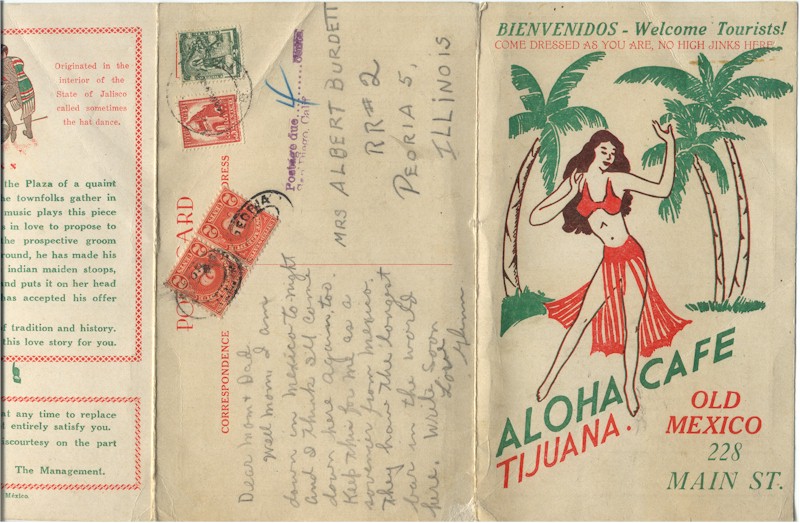 Originated in the
interior of the
State of Jalisco
called sometimes
the hat dance.
the Plaza of a quaint
he townfolks gather in
music plays this piece
s in love to propose to
the prospective groom
round, he has made his
indian maiden stoops,
and puts it on her head
has accepted his offer
of tradition and history.
this love story for you.
at any time to replace
entirely satisfy you.
iscourtesy on the part
The Management.
México.
POST CARD
CORRESPONDENCE
ADDRESS
Postage due
San Diego, Calif.
PEORIA
MRS ALBERT BURDETT
RR#2
PEORIA 5,
ILLINOIS
Dear Mom & Dad
Well mom, I am
down in Mexico to-night
and I think I'll come
down here again, too.
Keep this for me as a
sovenier from Mexico.
They have the longest
bar in the world
here. Write soon
Love
Glenn
BIENVENIDOS - Welcome Tourists!
COME DRESSED AS YOU ARE, NO HIGH JINKS HERE
ALOHA CAFE
TIJUANA.
OLD
MEXICO
228
MAIN ST.